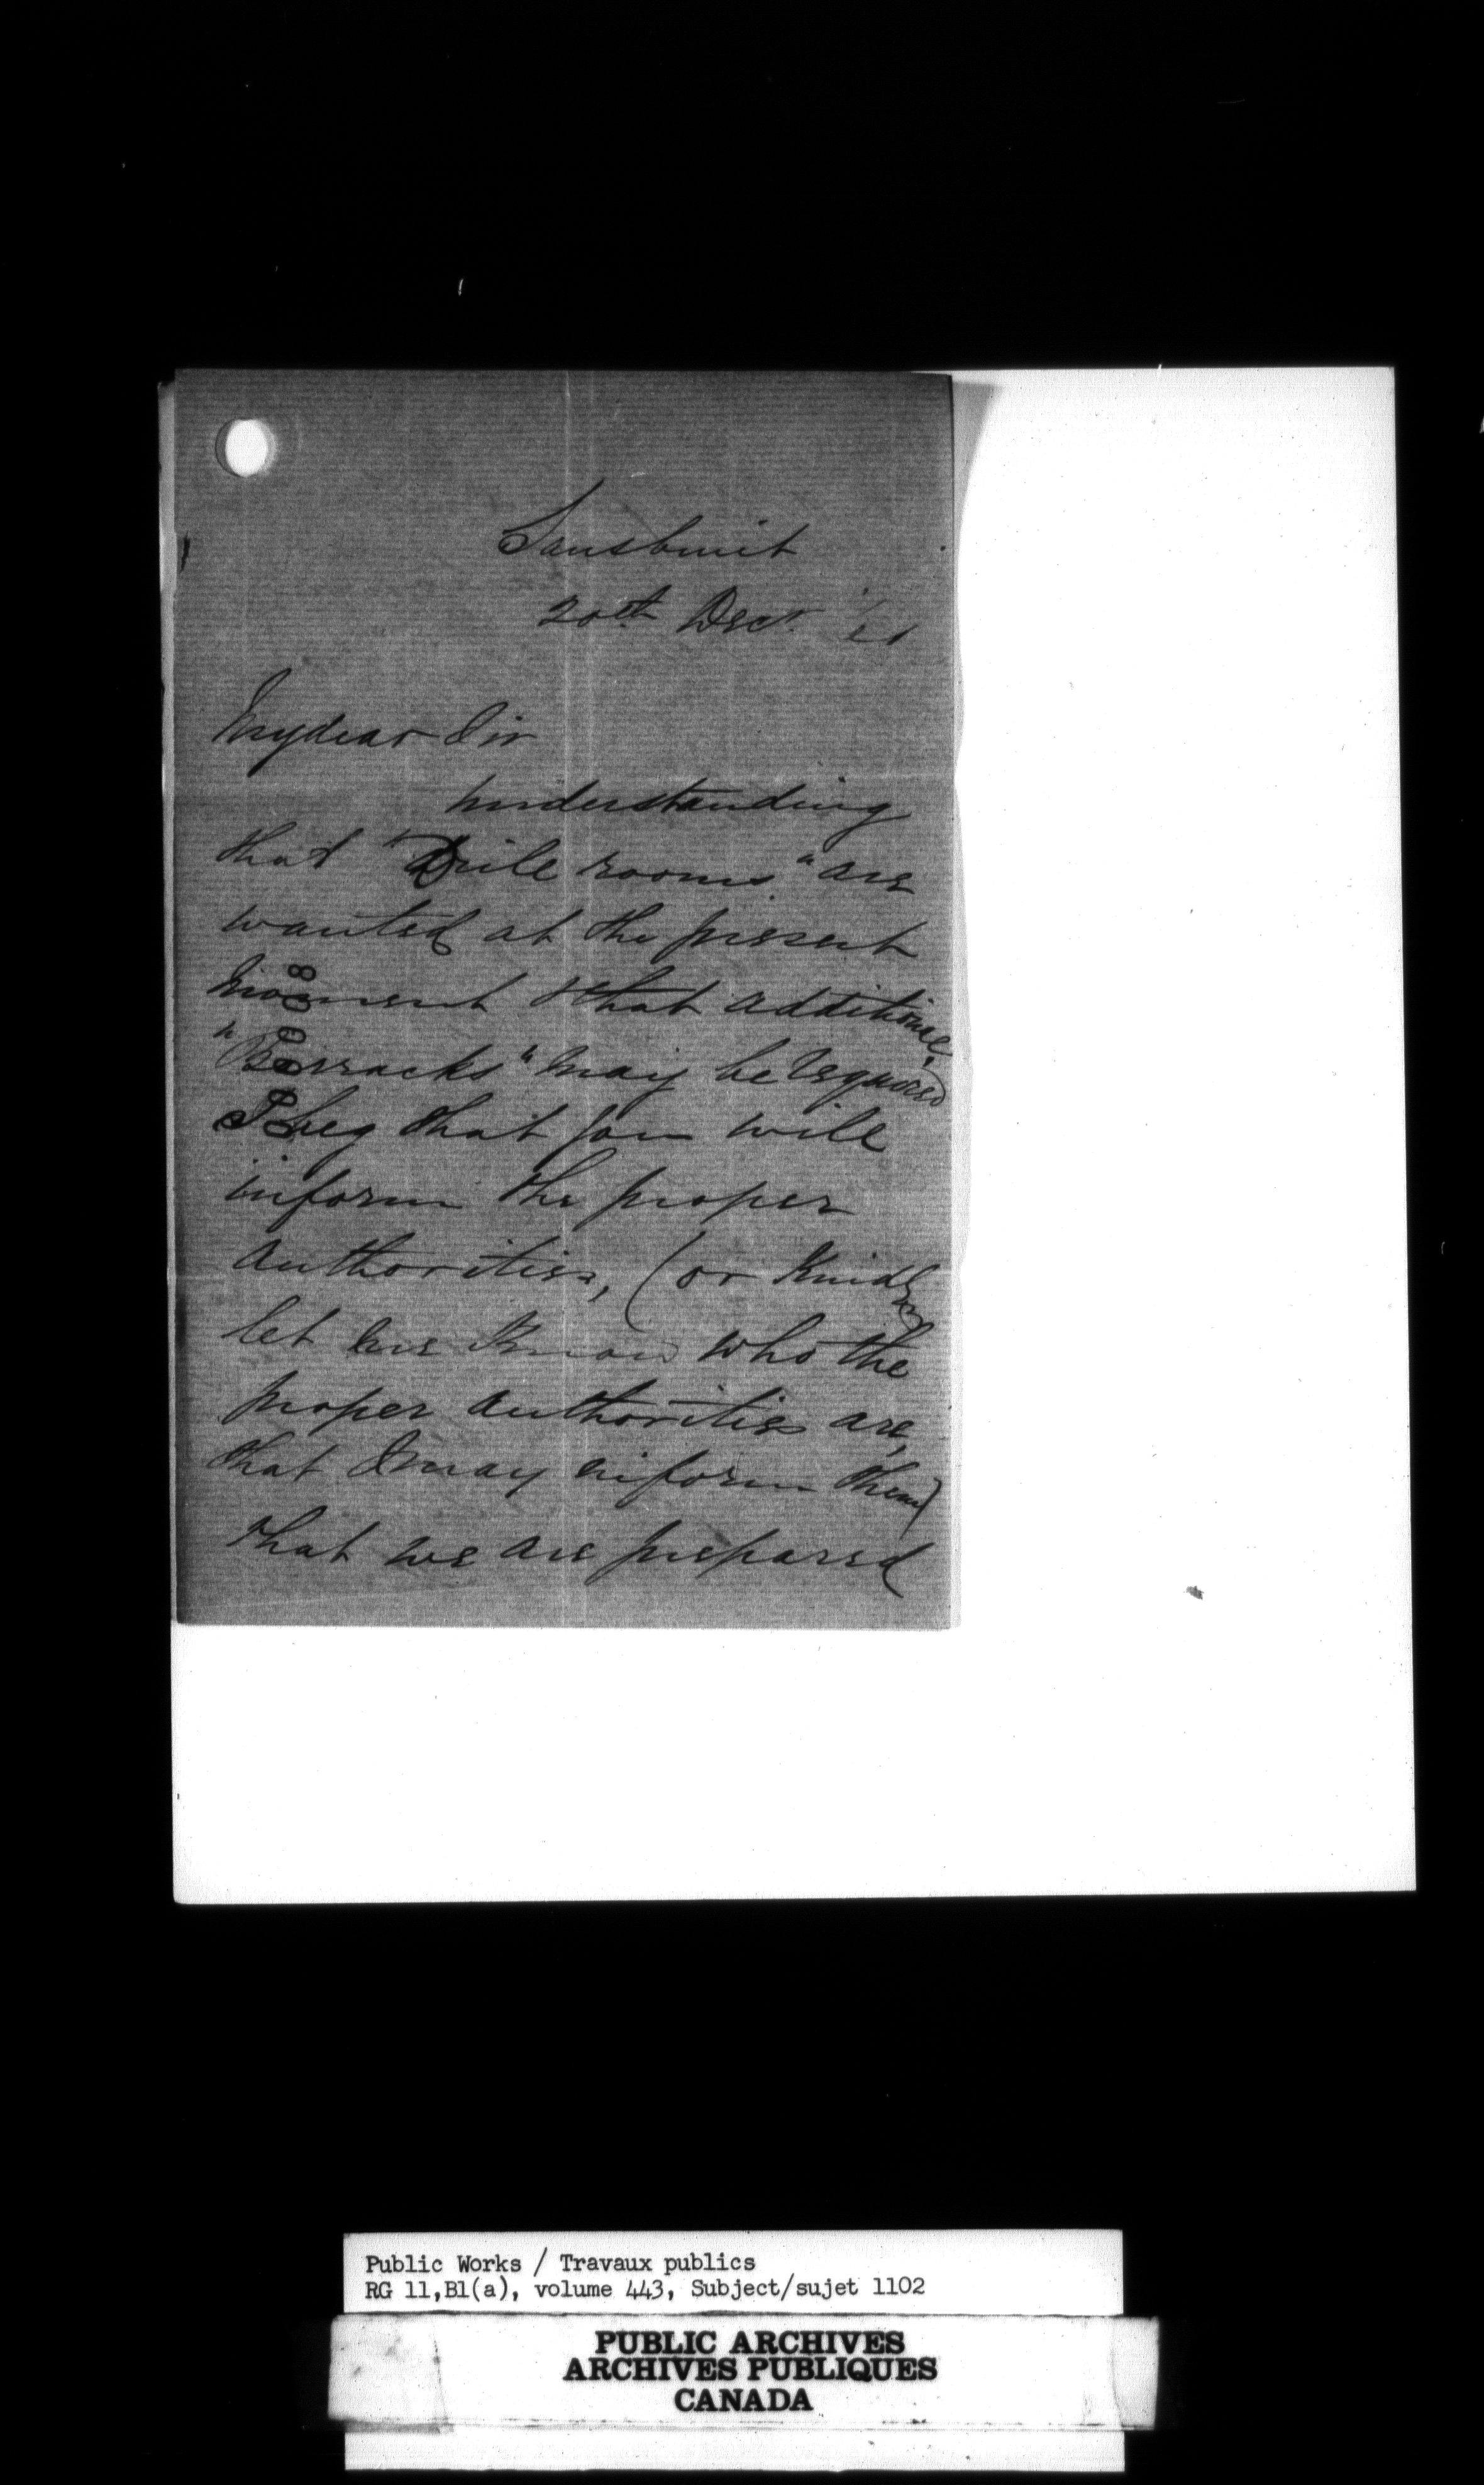 Sansbruit
20th Decr. '61
My dear Sir
understanding
that "Drill rooms" are
wanted at the present
moment & that additional
"Barracks" may be required
I beg that you will
inform the proper
authorities, (or kindly
let me know who the
proper authorities are,
that I may inform them)
that we are prepared
Public Works / Travaux publics
RG 11,B1(a), volume 443, Subject/sujet 1102
PUBLIC ARCHIVES
ARCHIVES PUBLIQUES
CANADA